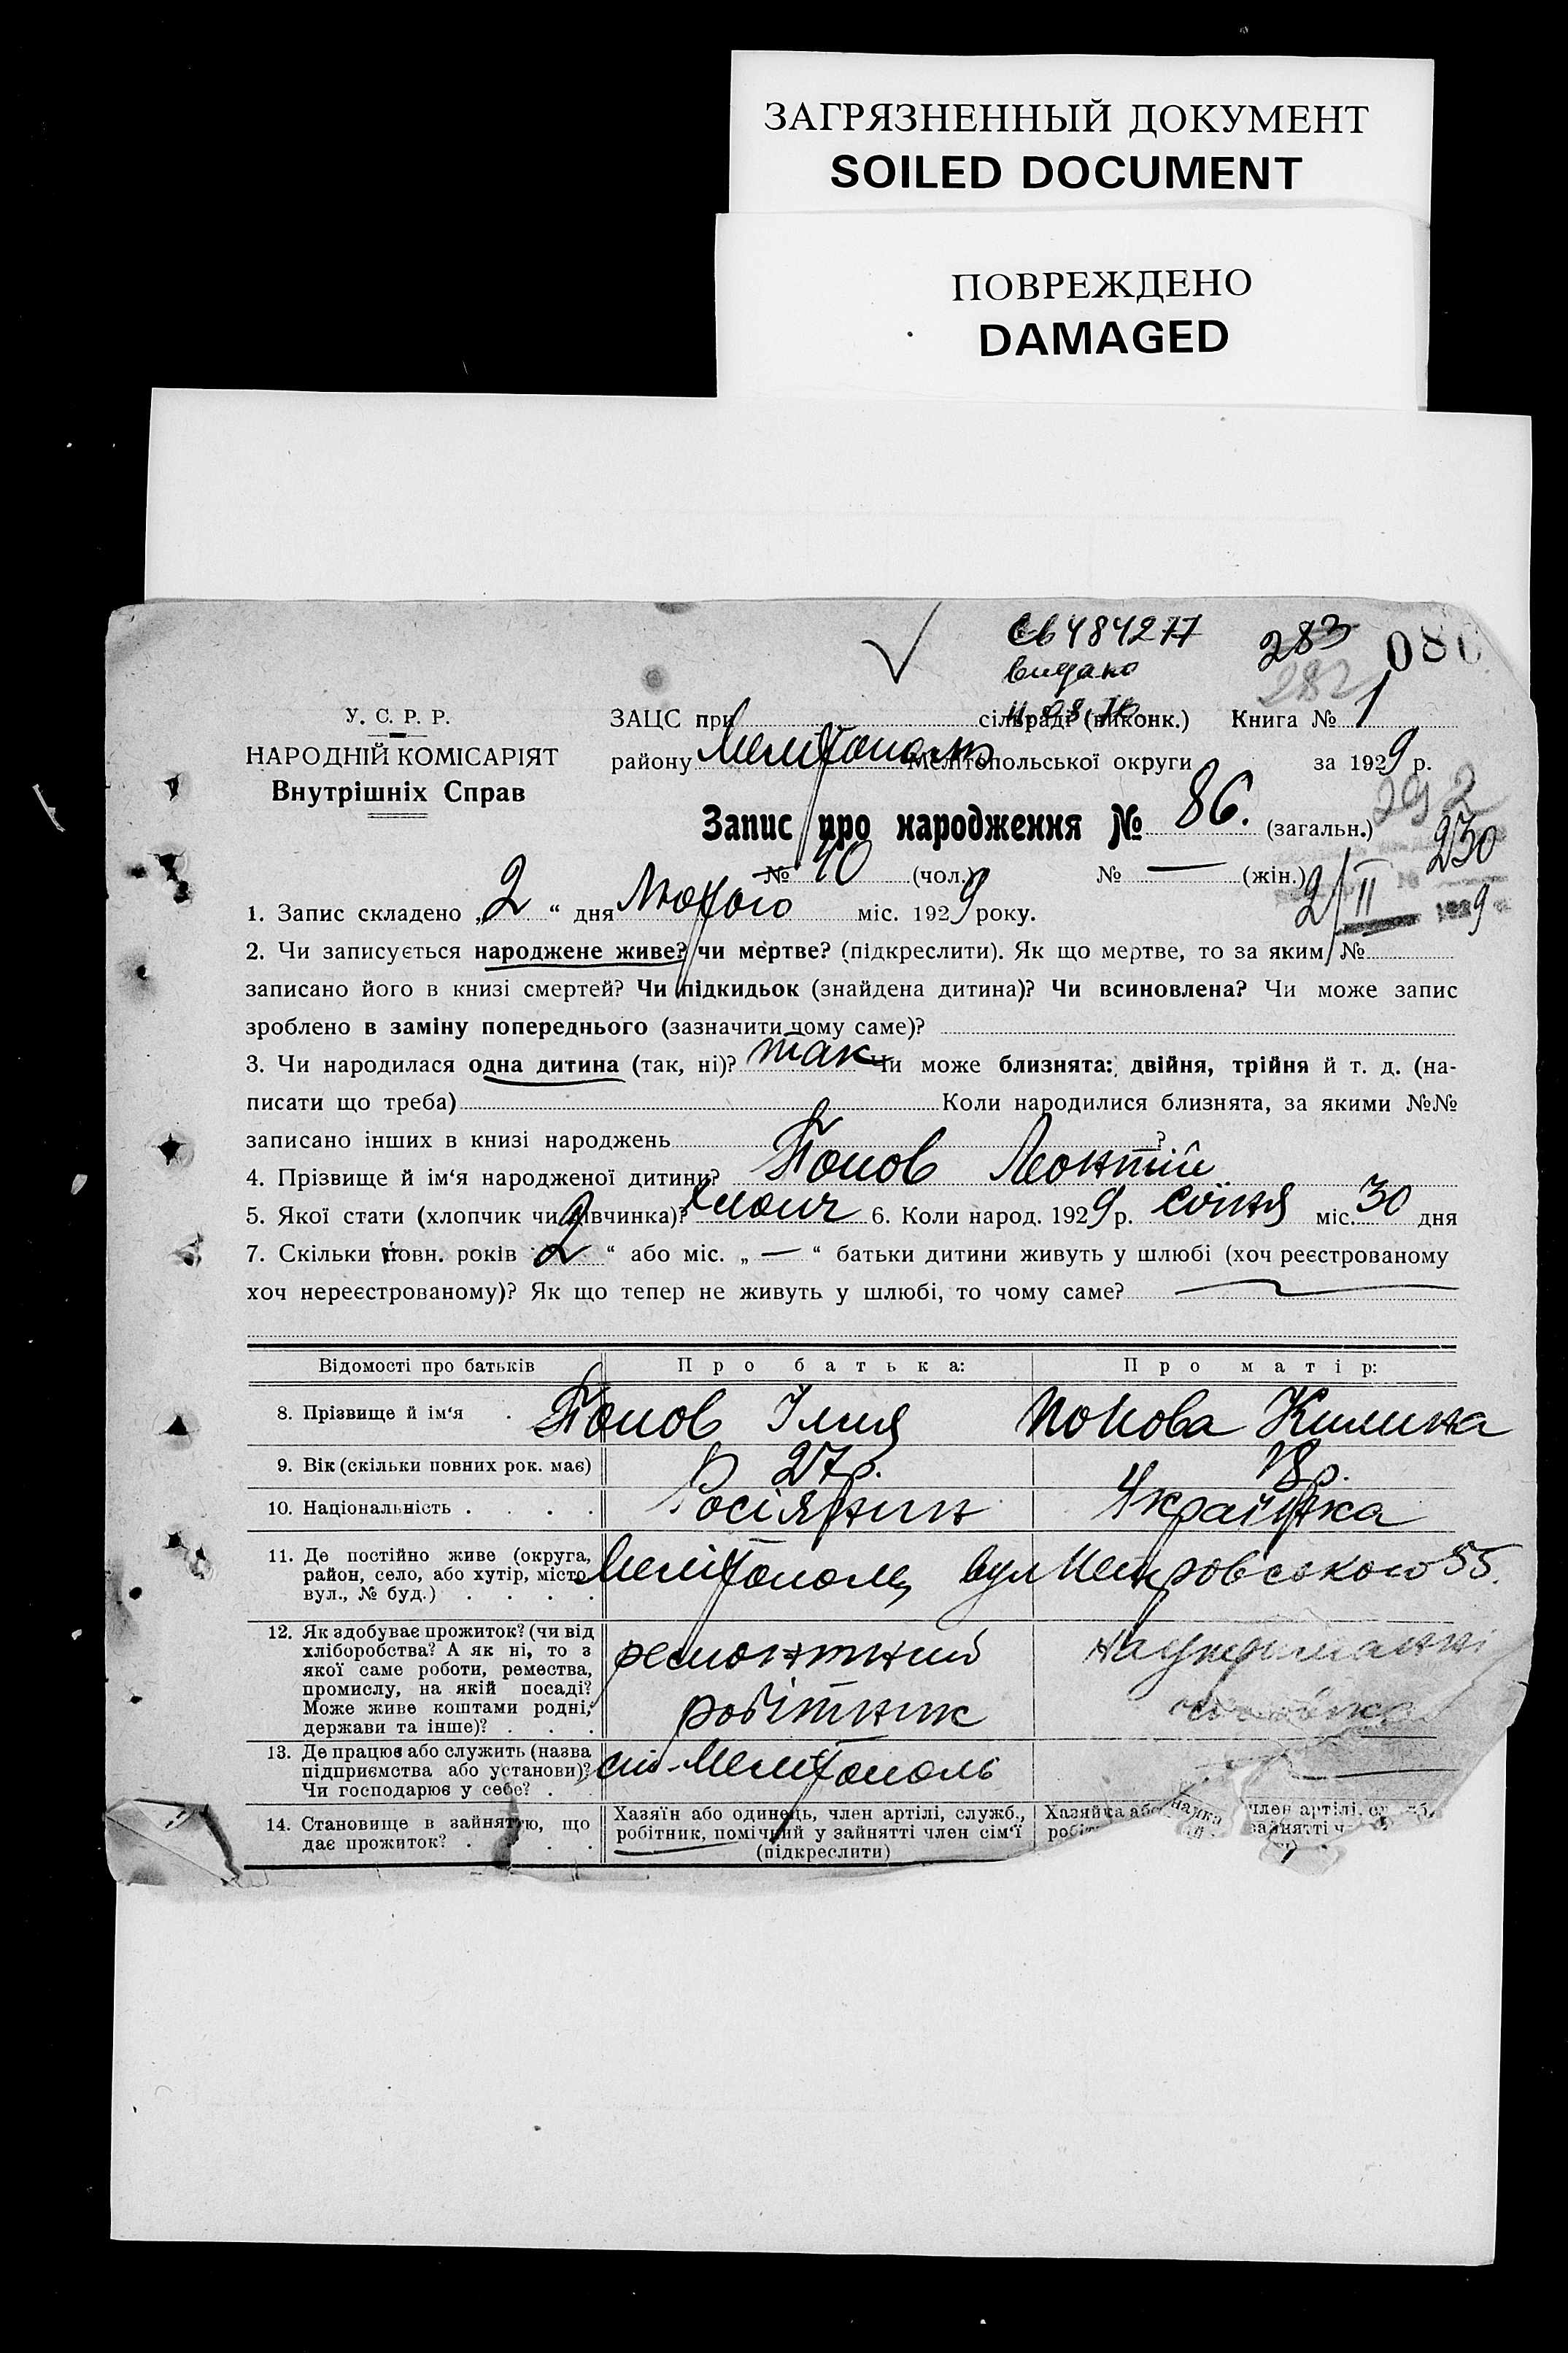 ЗАГРЯЗНЕННЫЙ ДОКУМЕНТ
SOILED DOCUMENT
ПОВРЕЖДЕНО
DAMAGED
Св 484277 283 080
видано 282
У. С. Р. Р. ЗАЦС при сільраді (виконк.) Книга № 1
НАРОДНІЙ КОМІСАРІЯТ району Мелітополь Мелітопольської округи за 1929 р.
Внутрішніх Справ 292
Запис про народження № 86. (загальн.) 230
№ 40 (чол.) № — (жін.) 2/II 1929
1. Запис складено „2“ дня Лютого міс. 1929 року.
2. Чи записується народжене живе? чи мертве? (підкреслити). Як що мертве, то за яким №
записано його в книзі смертей? Чи підкидьок (знайдена дитина)? Чи всиновлена? Чи може запис
зроблено в заміну попереднього (зазначити чому саме)?
3. Чи народилася одна дитина (так, ні)? так Чи може близнята: двійня, трійня й т. д. (на-
писати що треба) Коли народилися близнята, за якими №№
записано інших в книзі народжень ?
4. Прізвище й ім‘я народженої дитини? Попов Леонтій
5. Якої стати (хлопчик чи дівчинка)? хлопч 6. Коли народ. 1929 р. січня міс. 30 дня
7. Скільки повн. років „2“ або міс. „—“ батьки дитини живуть у шлюбі (хоч реєстрованому
хоч нереєстрованому)? Як що тепер не живуть у шлюбі, то чому саме? —
Відомості про батьків Про батька: Про матір:
8. Прізвище й ім‘я . Попов Ілля Попова Килина
9. Вік (скільки повних рок. має) 27 р. 18 р.
10. Національність . . . . Росіянин Українка
11. Де постійно живе (округа,
район, село, або хутір, місто,
вул., № буд.) . . . .
Мелітополь, вул Петровського 55.
12. Як здобуває прожиток? (чи від
хліборобства? А як ні, то з
якої саме роботи, ремества,
промислу, на якій посаді?
Може живе коштами родні,
держави та інше)? . . .
ремонтний
робітник
на утриманні
13. Де працює або служить (назва
підприємства або установи)?
Чи господарює у себе? . .
ст-Мелітополь —
14. Становище в зайняттю, що
дає прожиток? . . . .
Хазяїн або одинець, член артілі, служб.,
робітник, помічний у зайнятті член сім‘ї
(підкреслити)
Хазяйка або член артілі,
зайнятті